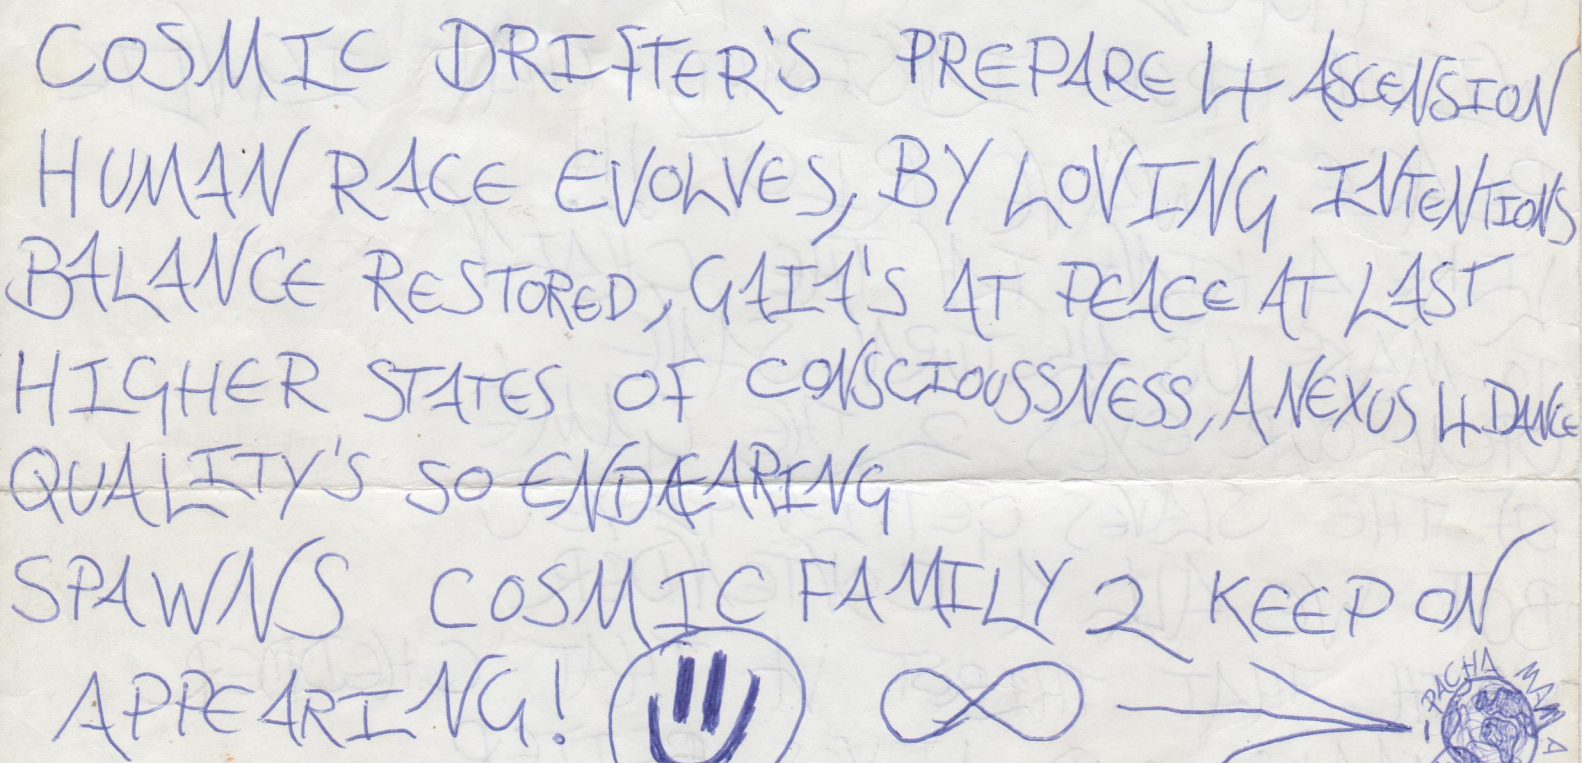 COSMIC DRIFTER'S PREPARE 4 ASCENSION
HUMAN RACE EVOLVES, BY LOVING INTENTIONS
BALANCE RESTORED, GAIA'S AT PEACE AT LAST
HIGHER STATES OF CONSCIOUSSNESS, A NEXUS 4 DANCE
QUALITY'S SO ENDEARING
SPAWNS COSMIC FAMILY 2 KEEP ON
APPEARING!
PACHA MAMA